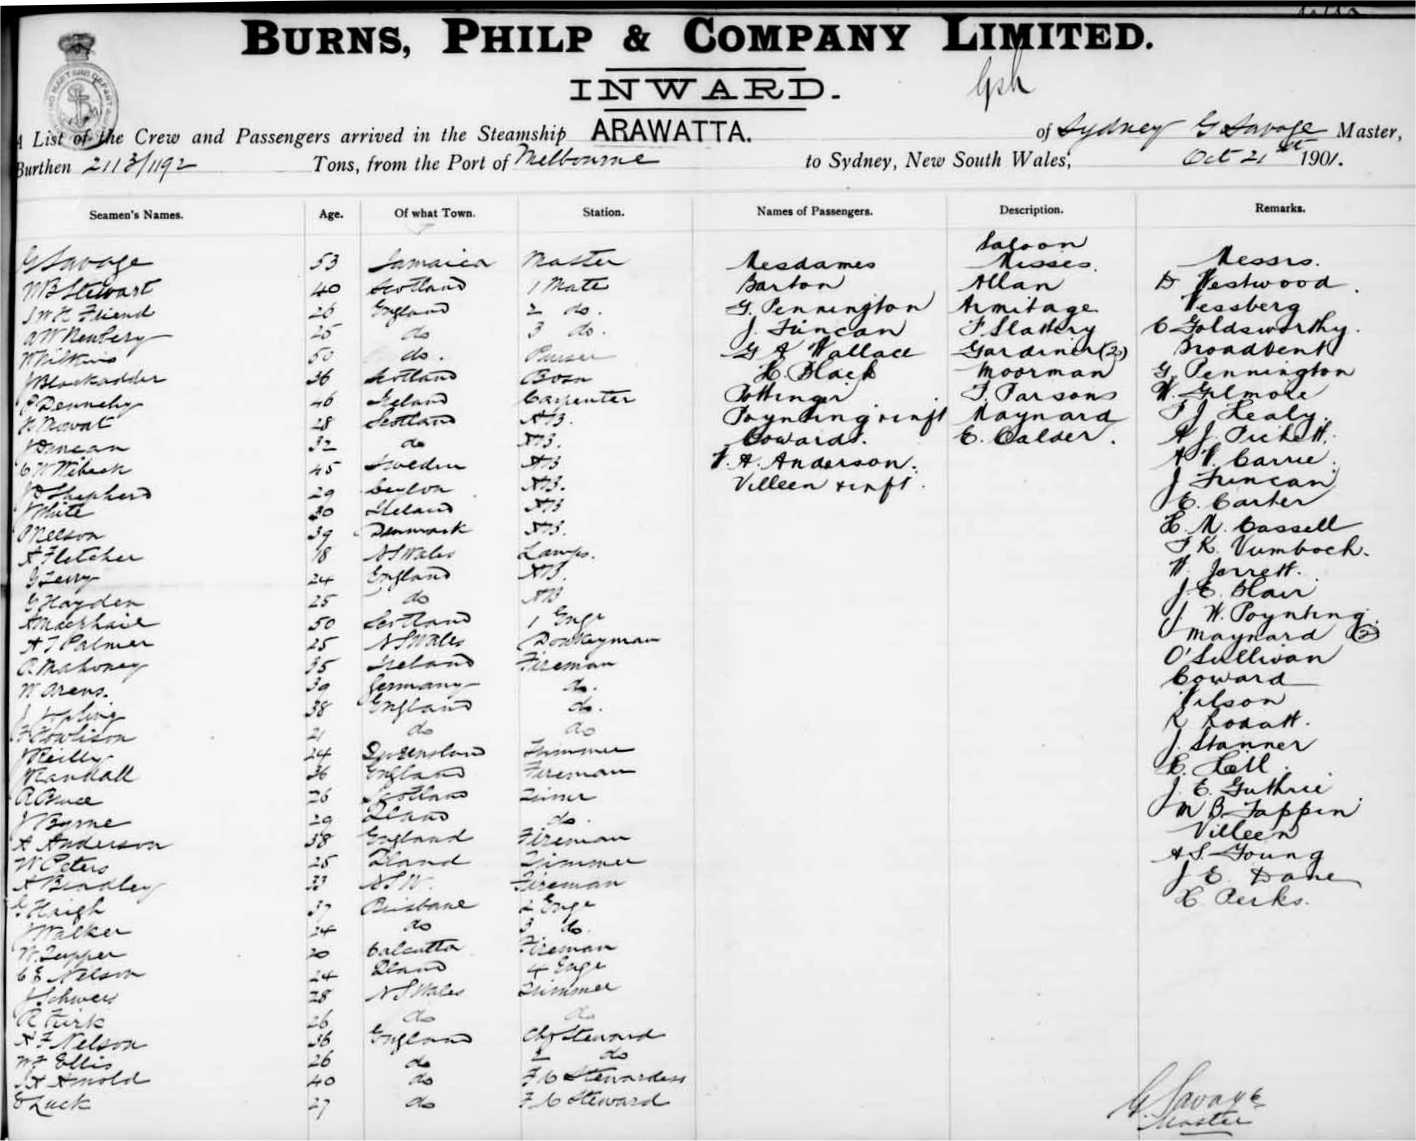 BURNS, PHILP & COMPANY LIMITED.
INWARD.
A List of the Crew and Passengers arrived in the Steamship ARAWATTA. of Sydney G Savage Master,
Burthen 2113/1192 Tons, from the Port of Melbourne to Sydney, New South Wales, Oct 21st 1901.
Seamen's Names. Age. Of what Town. Station. Names of Passengers. Description. Remarks.
Saloon
G Savage 53 Jamaica Master Mesdames Misses. Messrs.
W B Stewart 40 Scotland 1 Mate Barton Allan D Westwood.
J W C Friend 26 England 2 do. G. Pennington Armitage Vessberg
A W Newbery 25 do 3 do. J. Fincan F Slattery C Goldsworthy.
W Wilkins 50 do. Purser G A Wallace Gardiner (2) Broadbent
J Blackadder 36 Scotland Bosn H. Black Moorman G. Pennington
P Dennehy 46 Ireland Carpenter Pottinger F. Parsons W. Gilmore
Mowat 28 Scotland AB. Poynting & inft Maynard T J Healy.
J Duncan 32 do AB. Coward. E. Calder. A J Pickett.
C W Wibeck 45 Sweden AB W. A. Anderson. A W Carrie.
J D Shepherd 29 Ceylon AB. Villeen & inft. J Fincan
J White 30 Ireland AB E. Carter
P Nelson 39 Denmark AB. E. M. Cassell
A Fletcher 18 N S Wales Lamps. F K. Vumboch.
G Terry 24 England AB. W. Jarrett.
G Hayden 25 do AB J. E. Blair
A MacPhail 50 Scotland 1 Engr J W. Poynting.
A J Palmer 25 N S Wales Donkeyman Maynard (2)
P. Mahoney 35 Ireland Fireman O'Sullivan
W Arens. 39 Germany do. Coward
J Jopling 38 England do. Wilson
F Rowlison 21 do do
J Reilly 24 Queensland Trimmer J. Stanner
Randall 36 England Fireman H. Hill.
R Bruce 26 Scotland Trimr J. E. Guthrie
J Byrne 29 Qland do. M B Tappin
A Anderson 38 England Fireman Villeen
W Peters 25 Qland Trimmer A S. Young
A Bradley 33 N S W. Fireman J E Dane
G Haigh 37 Brisbane 2 Engr H. Perks.
J Walker 24 do 3 do.
W. Tupper 20 Calcutta Fireman
C E Nelson 24 Qland 4 Engr
J Schweis 28 N S Wales Trimmer
R Kirk 26 do do
A F Nelson 36 England Chf Steward
W F Ellis 26 do 2 do
A Arnold 40 do F C Stewardess
E Luck 27 do F C Steward
G. Savage
Master